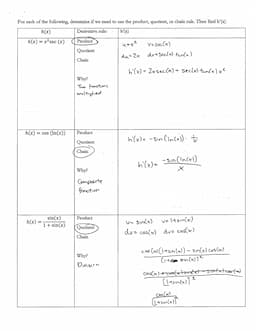 For each of the following, determine if we need to use the product, quotient, or chain rule. Then find h'(x).
h(x) Derivative rule: h'(x)
h(x) = x² sec(x)
Product
Quotient
Chain
Why?
Two functions
multiplied
u=x² v=sec(x)
du=2x dv=sec(x) tan(x)
h'(x)= 2x sec(x)+ sec(x) tan(x) x²
h(x) = cos(ln(x))
Product
Quotient
Chain
Why?
Composite
function
h'(x)= -sin(ln(x)) · 1/x
h'(x)= -sin(ln(x)) / x
h(x) = sin(x) / 1 + sin(x)
Product
Quotient
Chain
Why?
Division
u= sin(x) v= 1+sin(x)
du= cos(x) dv= cos(x)
cos(x)(1+sin(x)) - sin(x) cos(x)
(1+sin(x))²
(1+sin(x))²
cos(x)
(1+sin(x))²